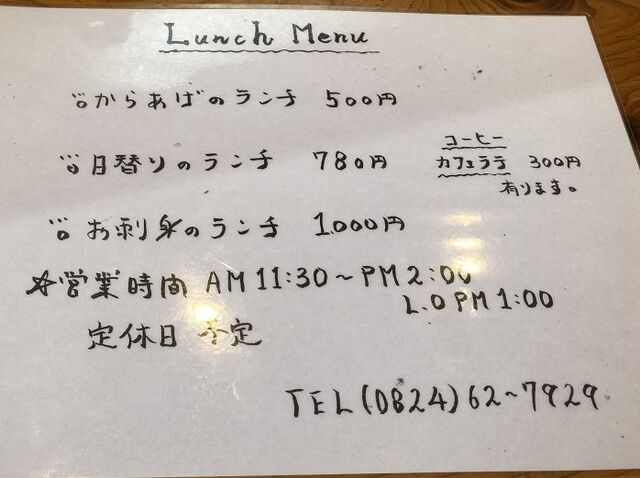 Lunch Menu
からあげのランチ 500円
日替りのランチ 780円
コーヒー
カフェラテ 300円
有ります。
お刺身のランチ 1000円
営業時間 AM 11:30～PM 2:00
L.O PM 1:00
定休日 不定
TEL(0824)62~7929